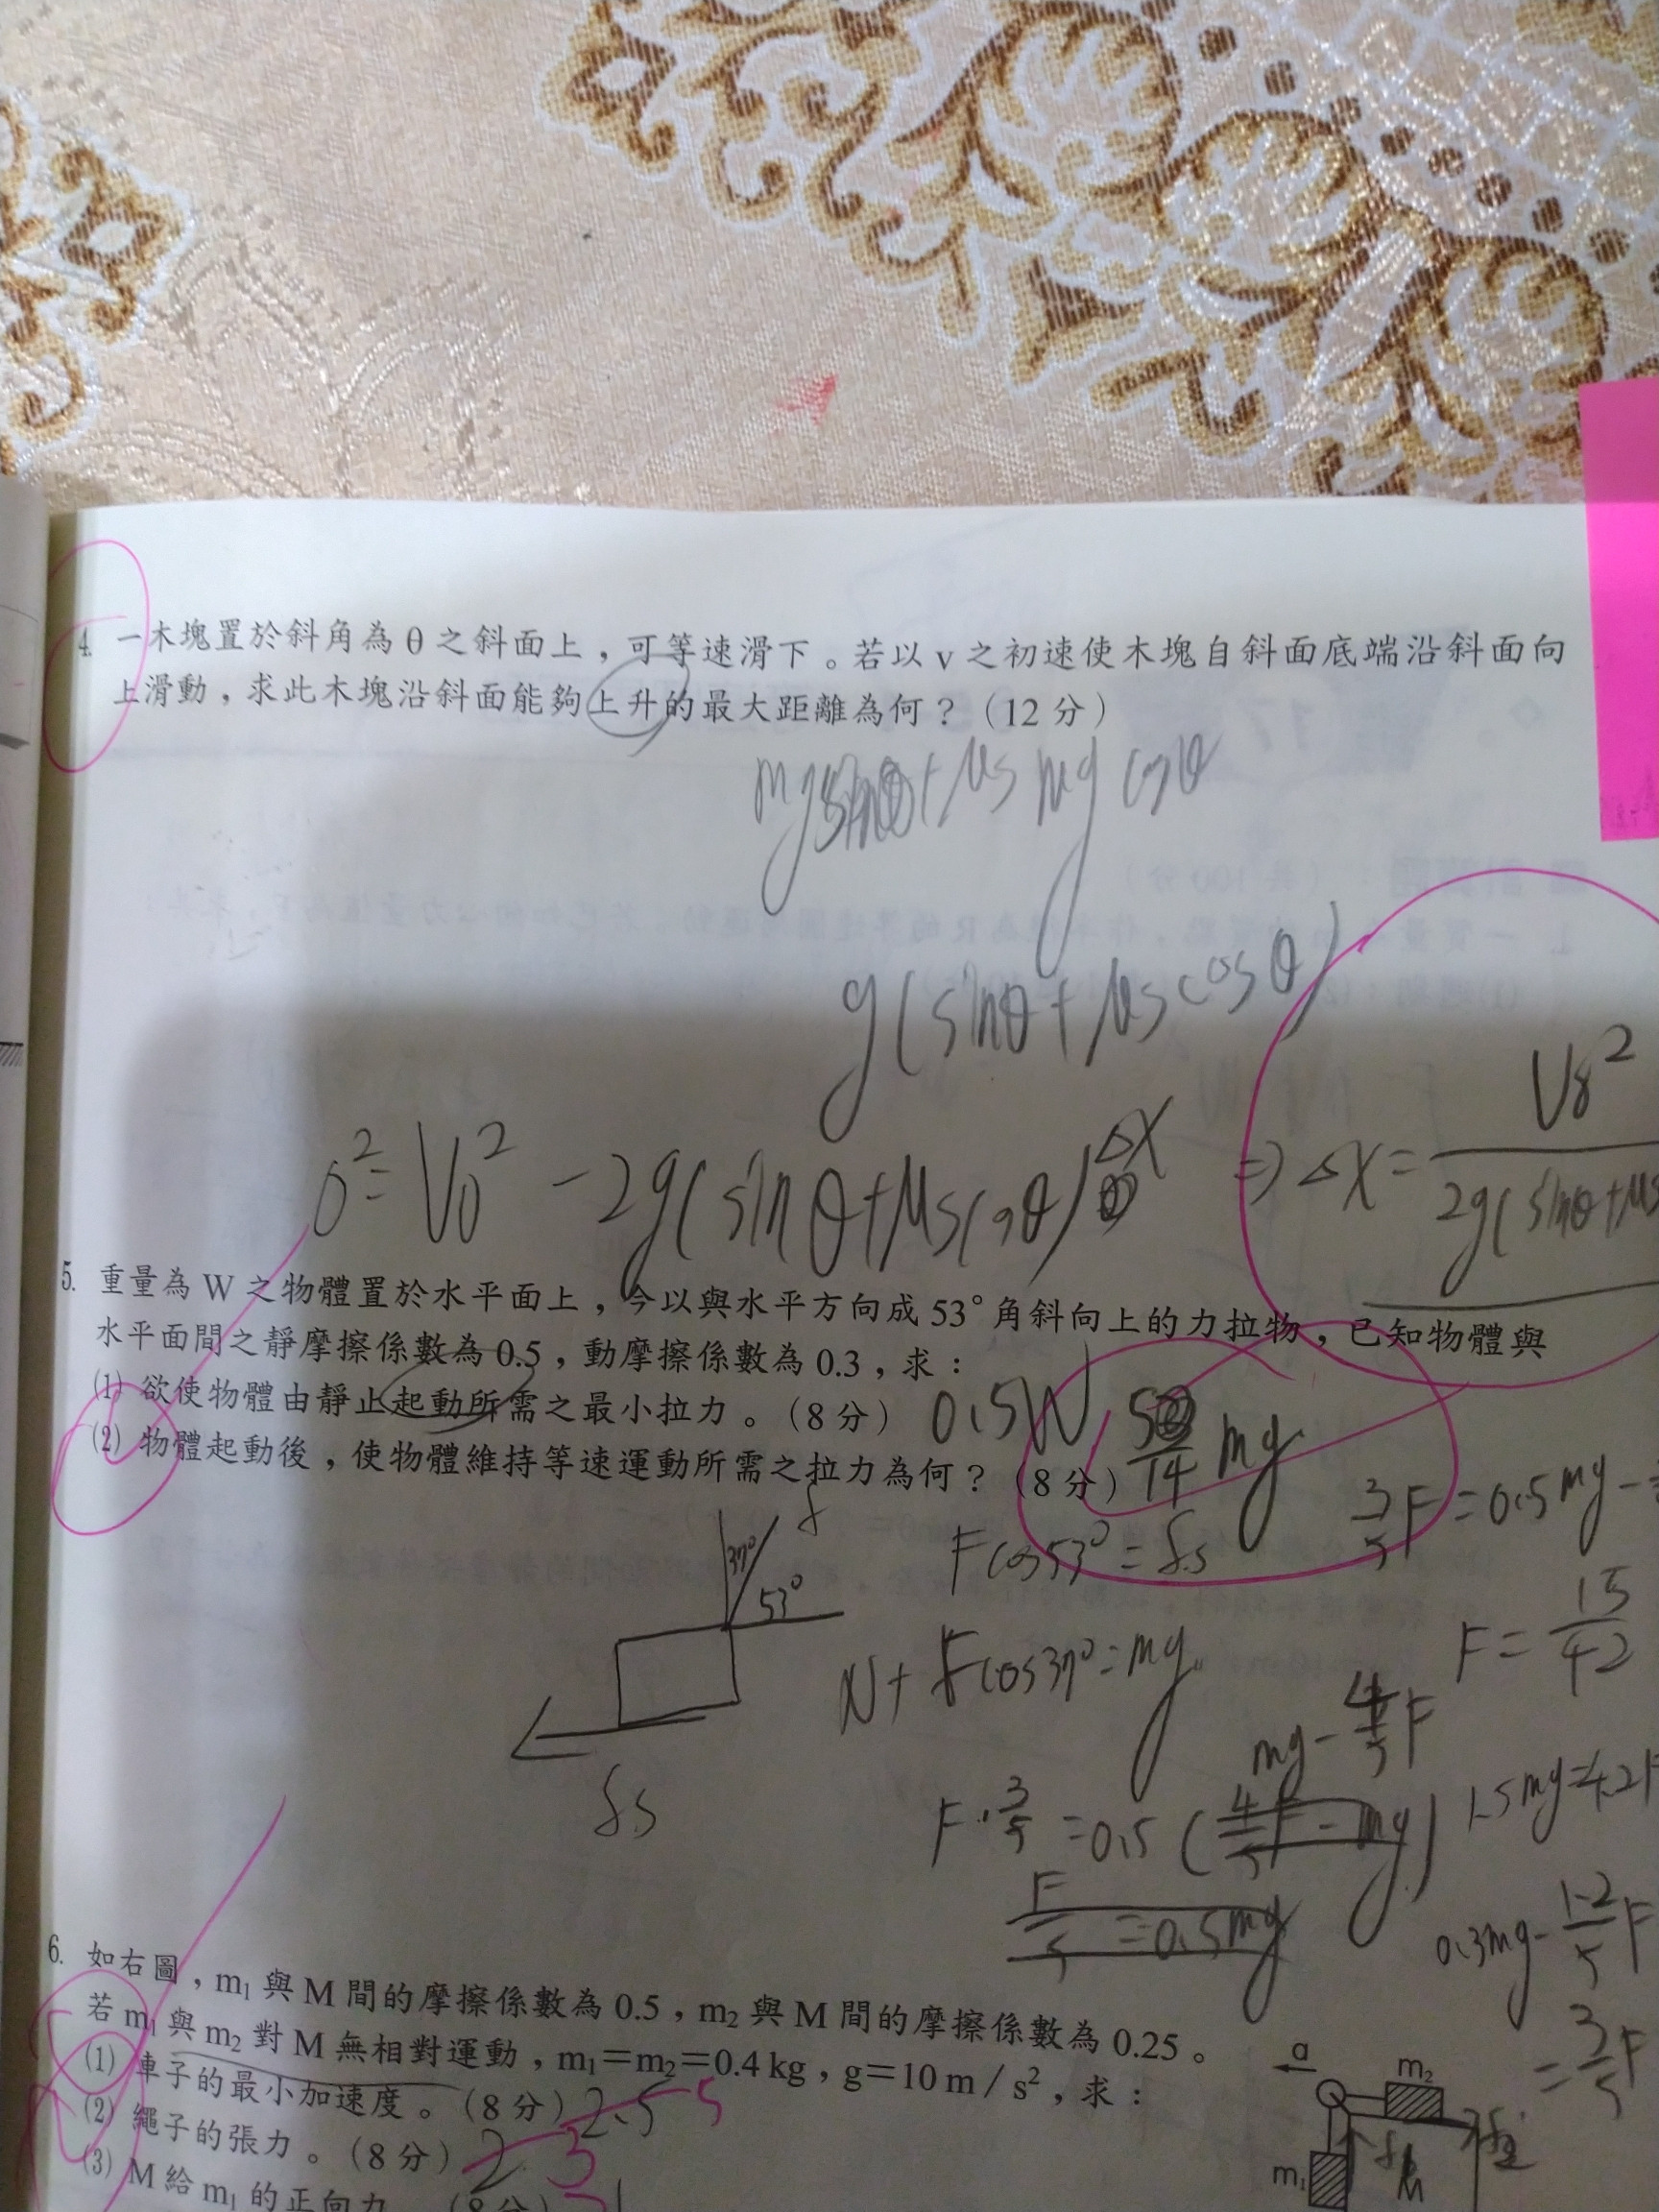 4. 一木塊置於斜角為 θ 之斜面上，可等速滑下。若以 v 之初速使木塊自斜面底端沿斜面向
上滑動，求此木塊沿斜面能夠上升的最大距離為何？（12 分）
mg sinθ + μs mg cosθ
g(sinθ + μs cosθ)
0² = V0² - 2g(sinθ + μs cosθ) ΔX ⇒ ΔX = V0² / 2g(sinθ + μs
5. 重量為 W 之物體置於水平面上，今以與水平方向成 53° 角斜向上的力拉物，已知物體與
水平面間之靜摩擦係數為 0.5，動摩擦係數為 0.3，求：
(1) 欲使物體由靜止起動所需之最小拉力。（8 分） 0.5W
(2) 物體起動後，使物體維持等速運動所需之拉力為何？（8 分）
mg
3/5 F = 0.5mg -
37°
53°
F cos53° = fs
F = 15/42
N + F cos37° = mg
mg - 4/5 F
fs
F · 3/5 = 0.5 ( 4/5 F - mg )
1.5mg = 4.2F
F/5 = 0.5mg
0.3mg - 1.2/5 F
= 3/5 F
6. 如右圖，m₁ 與 M 間的摩擦係數為 0.5，m₂ 與 M 間的摩擦係數為 0.25。
若 m₁ 與 m₂ 對 M 無相對運動，m₁＝m₂＝0.4 kg，g＝10 m／s²，求：
(1) 車子的最小加速度。（8 分） 2.5 5
(2) 繩子的張力。（8 分） 2 3
(3) M 給 m₁ 的正向力。（8 分）
a
m₂
M
m₁